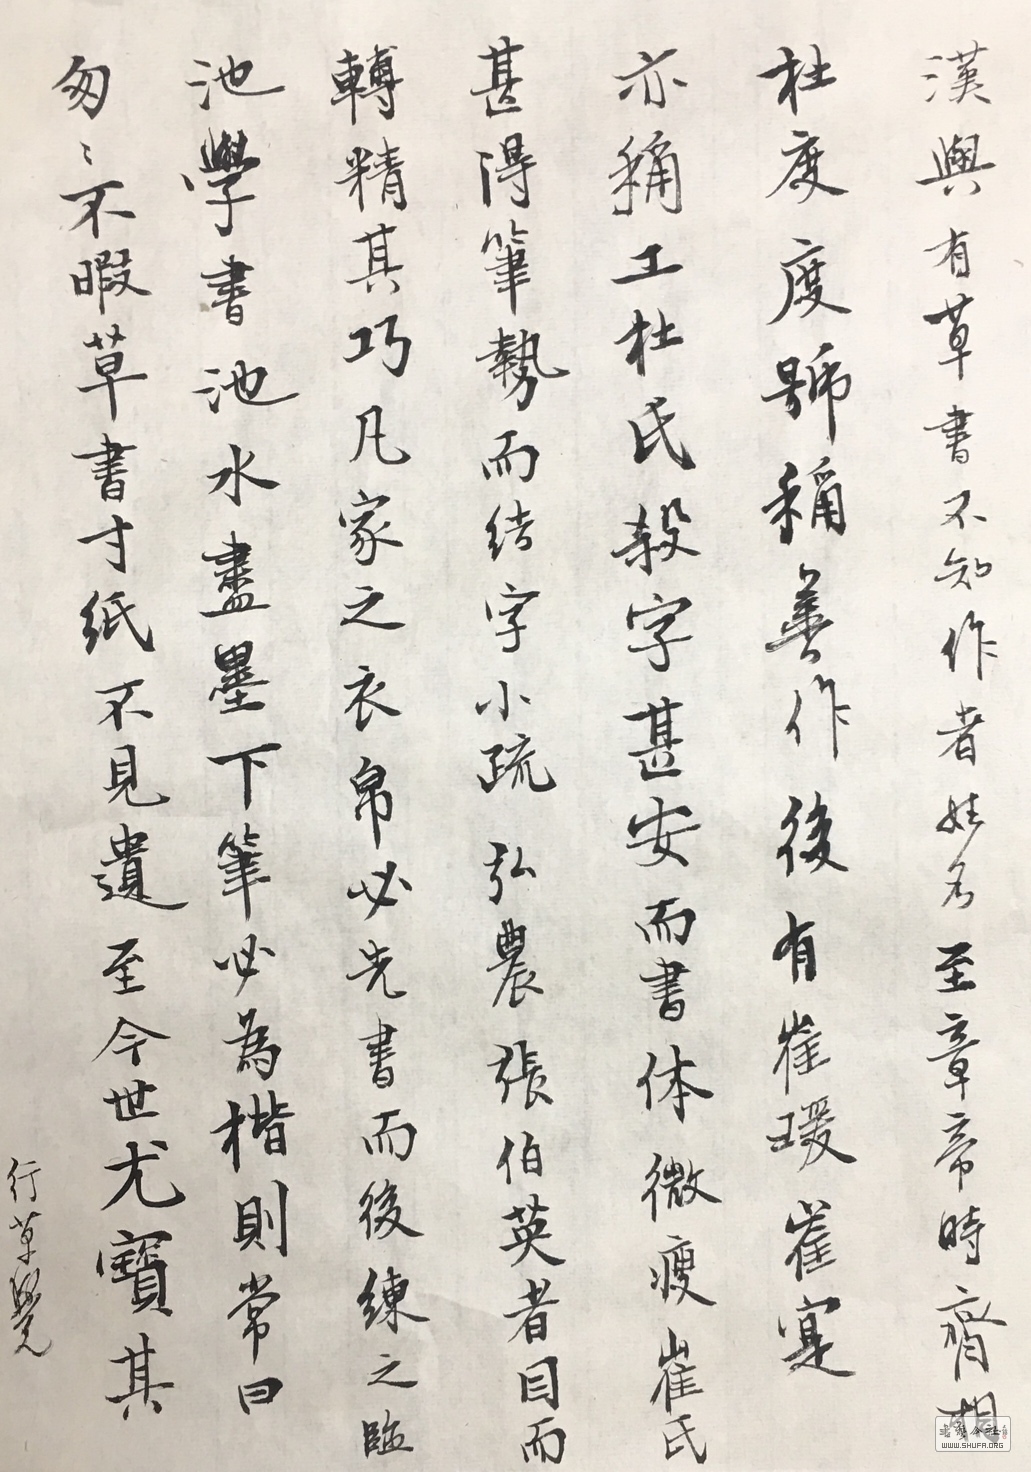 漢興有草書不知作者姓名至章帝時齊相
杜度度號稱善作後有崔瑗崔寔
亦稱工杜氏殺字甚安而書体微瘦崔氏
甚得筆勢而結字小疏弘農張伯英者因而
轉精其巧凡家之衣帛必先書而後練之臨
池學書池水盡墨下筆必為楷則常曰
匆〻不暇草書寸紙不見遺至今世尤寶其
行草覺
書法会社
WWW.SHUFA.ORG